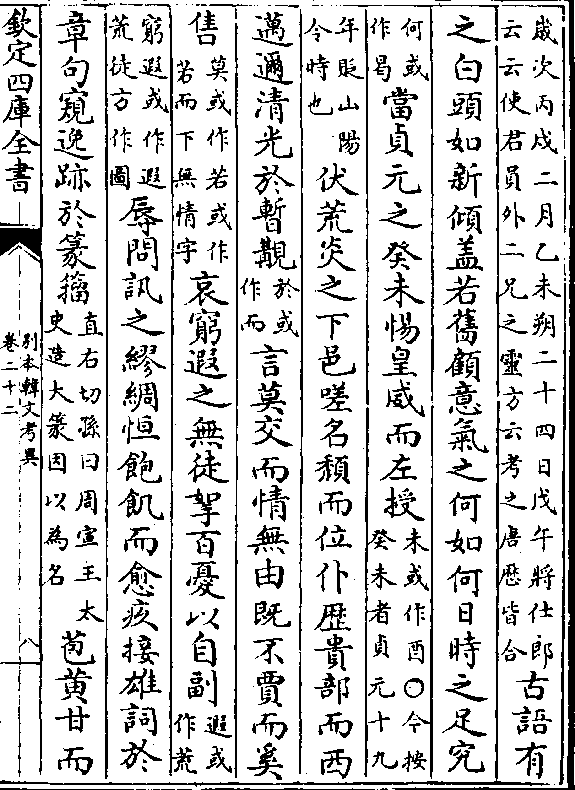 歲次丙戌二月乙未朔二十四日戊午將仕郎
云云使君員外二兄之靈方云考之唐歷皆合
古語有
之白頭如新傾盖若舊顧意氣之何如何日時之足究
何或
作曷
當貞元之癸未惕皇威而左授
未或作酉○今按
癸未者貞元十九
年貶山陽
令時也
伏荒炎之下邑嗟名頽而位仆歴貴部而西
邁邇清光於暫覿
於或
作而
言莫交而情無由既不賈而奚
售
莫或作若或作
若而下無情字
哀窮遐之無徒挐百憂以自副
遐或
作荒
窮遐或作遐
荒徒方作圖
辱問訊之繆綢恒飽飢而愈疚接雄詞於
章句窺逸跡於篆籕
直右切孫曰周宣王太
史造大篆因以為名
苞黄甘而
欽定四庫全書
別本韓文考異
卷二十二
八